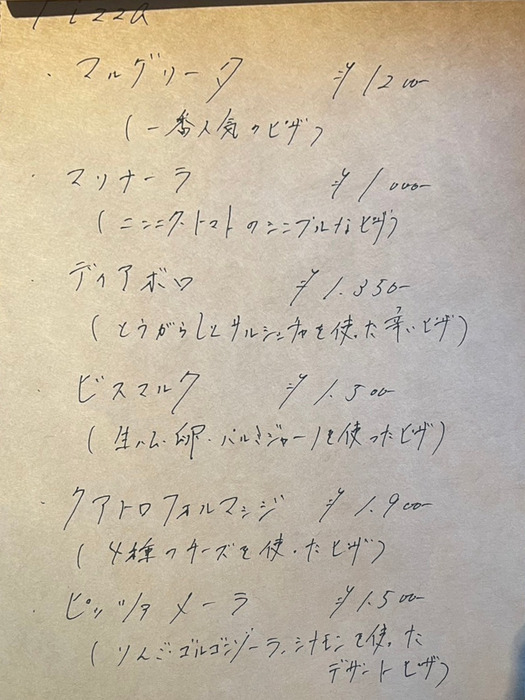 Pizza
・マルゲリータ ¥1200-
(一番人気のピザ)
・マリナーラ ¥1000-
(ニンニク・トマトのシンプルなピザ)
・ディアボロ ¥1.350-
(とうがらしとサルシッチャを使った辛いピザ)
・ビスマルク ¥1.500-
(生ハム・卵・パルミジャーノを使ったピザ)
・クアトロフォルマッジ ¥1.900-
(4種のチーズを使ったピザ)
・ピッツァメーラ ¥1.500-
(りんご・ゴルゴンゾーラ、シナモンを使った
デザートピザ)